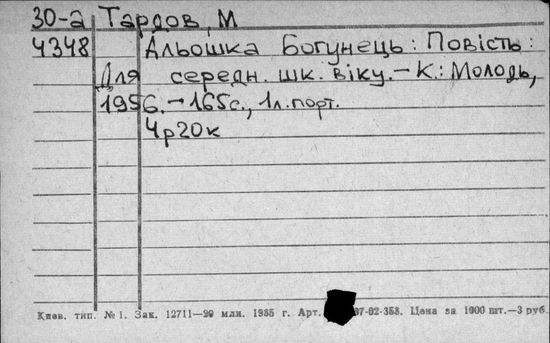 30-а Тардов, М
4348 Альошка Богунець: Повість:
Для середн. шк. віку. – К.: Молодь,
1956. – 165с., 1л. порт.
4р20к
Киев. тип. № 1. Зак. 12711—20 млн. 1985 г. Арт. 37-02-358. Цена за 1000 шт.—3 руб.